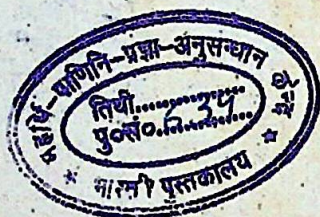 महर्षि-पाणिनि-प्रज्ञा-अनुसन्धान केन्द्र
तिथी..............
पु०सं०............34
* भारती पुस्तकालय *